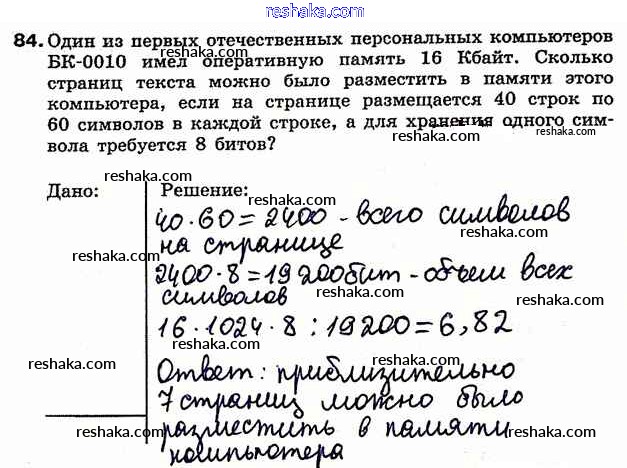 reshaka.com
reshaka.com
84. Один из первых отечественных персональных компьютеров
БК-0010 имел оперативную память 16 Кбайт. Сколько
страниц текста можно было разместить в памяти этого
компьютера, если на странице размещается 40 строк по
60 символов в каждой строке, а для хранения одного сим-
вола требуется 8 битов?
reshaka.com
reshaka.com
reshaka.com
reshaka.com
reshaka.com
Дано:
Решение:
reshaka.com
40·60=2400 - всего символов
на странице
reshaka.com
reshaka.com
reshaka.com
2400·8=19200бит - объем всех
символов
reshaka.com
16·1024·8:19200=6,82
reshaka.com
reshaka.com
reshaka.com
Ответ: приблизительно
7 страниц можно было
разместить в памяти
компьютера
reshaka.com
reshaka.com
reshaka.com
reshaka.com